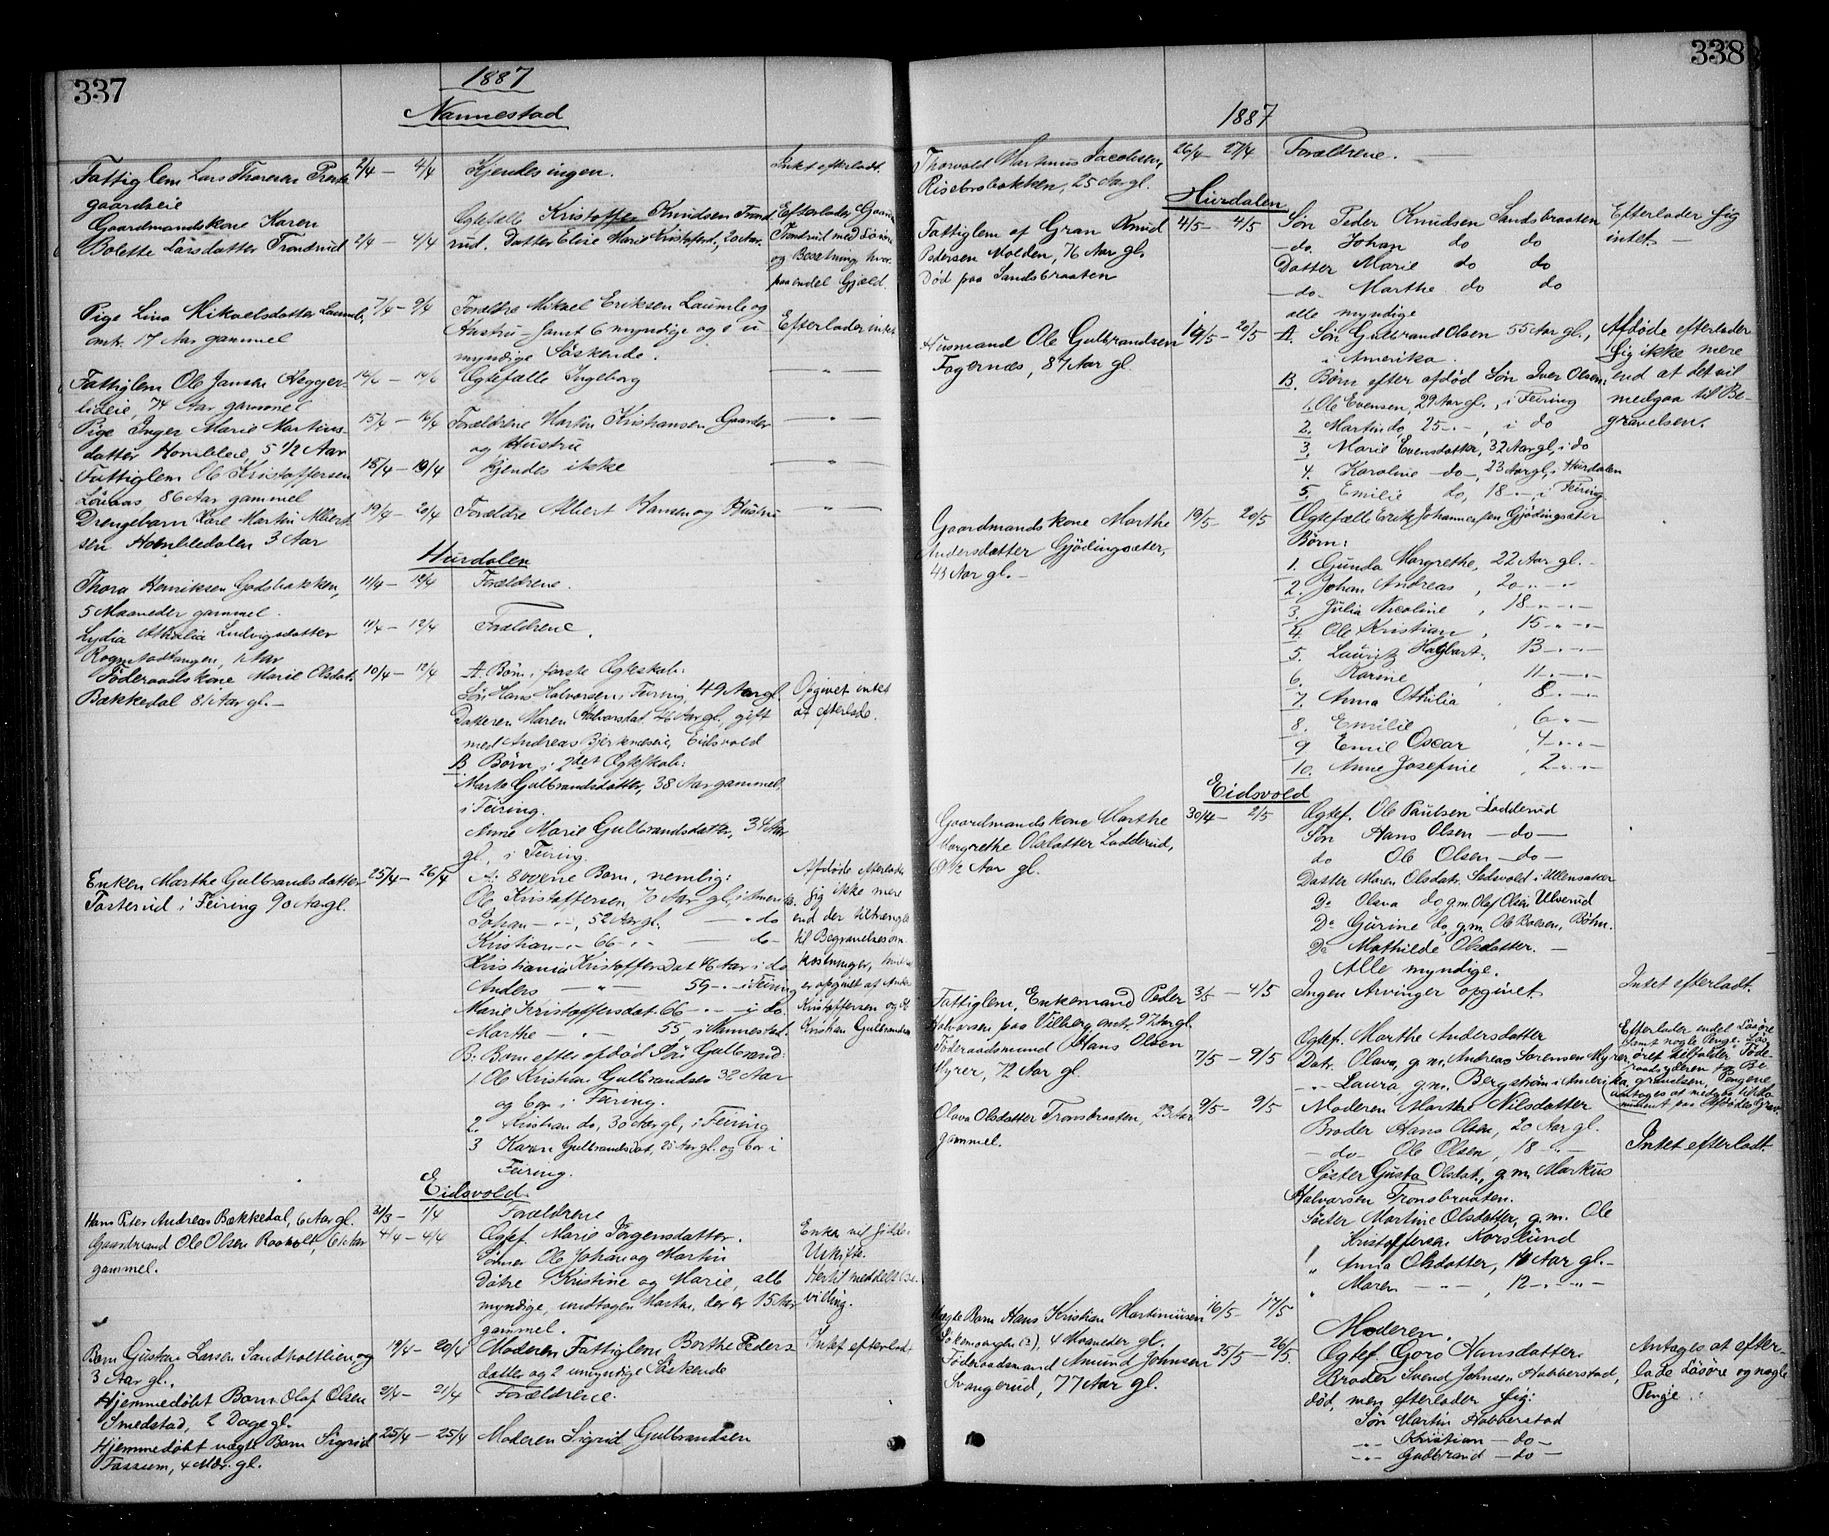 337
1887
Nannestad
Fattiglem Lars Thoresen
gaardseie
2/4 — 4/4
Kjendes ingen.
Intet efterladt.
Gaardmandskone Karen
Bolette Larsdatter Trondrud
2/4 — 4/4
Ægtefælle Kristoffer Knudsen Trond
rud. Datter Elise Marie Kristofersd., 20 Aar.
Efterlader Gaarden
Trondrud med Løsøre
og Besetning hvor-
paa endel Gjeld.
Pige Lina Mikaelsdatter
omtr. 17 Aar gammel
7/4 — 9/4
Forældre Mikael Eriksen og
Hustru – samt 6 myndige og 2 u-
myndige Søskende.
Efterlader intet
Fattiglem Ole Jansen Hegger-
lieie, 74 Aar gammel
14/4 — 14/4
Ægtefælle Ingeborg
— " —
Pige Inger Marie Martins-
datter Hombleie, 5 1/2 Aar
15/4 — 16/4
Forældrene Martin Kristiansen
og Hustru
— " —
Fattiglem Ole Kristoffersen
86 Aar gammel
18/4 — 19/4
Kjendes ikke
— " —
Drengebarn Karl Martin Albert-
sen Hombledalen 3 Aar
19/4 — 20/4
Forældre Albert Hansen og Hustru
— " —
Hurdalen
Thora Henriksen Godsbakken,
5 Maaneder gammel.
11/4 — 12/4
Forældrene.
Lydia Athalia Ludvigsdatter
Rognstadtangen, 1 Aar
11/4 — 12/4
Forældrene.
Føderaadskone Marie Olsdat.
Bækkedal 81 Aar gl. —
10/4 — 12/4
A. Børn, første Ægteskab:
Søn Hans Halvorsen, Feiring, 49 Aar gl.
Datteren Maren Halvorsdat. 46 Aar gl., gift
med Andreas Bjerknæseie, Eidsvold
B Børn i 2det Ægteskab:
Marte Gulbrandsdatter, 38 Aar gammel,
i Feiring.
Anne Marie Gulbrandsdatter, 34 Aar
gl., i Feiring.
Opgivet intet
at efterlade.
Enken Marthe Gulbrandsdatter
Tosterud i Feiring 90 Aar gl.
25/4 — 26/4
A: 8 voxne Børn, nemlig:
Ole Kristoffersen, 70 Aar gl., i Amerika.
Johan — " —, 52 Aar gl. — " do
Kristian — " — 66 — " — do —
Kristiania Kristoffersdat 46 Aar i do
Anders — " — 59 — " — i Feiring
Marie Kristoffersdat. 66 — " — i do.
Marthe — " — 55 i Nannestad.
B: Børn efter afdød Søn Gulbrand:
1 Ole Kristian Gulbrandsen 32 Aar
og bor i Feiring.
2. Kristian do, 30 Aar gl., i Feiring
3 Karen Gulbrandsdat, 25 Aar gl. og bor i
Feiring.
Afdøde efterlader
sig ikke mere
end der tiltrænges
til Begravelsesom-
kostninger,
er opgivet af Anders
Kristoffersen og Ole
Kristian Gulbrandsen
Eidsvold.
Hans Peter Andreas Bækkedal, 6 Aar gl.
31/3 — 1/4
Forældrene
Gaardmand Ole Olsen Raaholt, 61 Aar
gammel.
4/4 — 4/4
Ægtef. Marie Jørgensdatter.
Sønner Ole Johan og Martin
Døtre Kristine og Marie, alle
myndige, undtagen Martin, der er 15 Aar
gammel.
Enka vil sidde i
Uskifte.
Hertil meddelt Be-
villing.
Barn Gustav Larsen Sandholtlien
3 Aar gl.
19/4 — 20/4
Moderen Fattiglem Berthe Peders-
datter og 2 umyndige Søskende
Intet efterladt
Hjemmedøbt Barn Olaf Olsen
Smedstad, 2 Dage gl.
21/4 — 21/4
Forældrene
Hjemmedøbt uægte Barn Sigrid
Fassum, 4 Mdr. gl.
25/4 — 25/4
Moderen Sigrid Gulbrandsen
338
1887
Thorvald Martinus Jacobsen,
Risebrobakken, 25 Aar gl.
26/4 — 27/4
Forældrene.
Hurdalen
Fattiglem af Gran Knud
Pedersen Molden, 76 Aar gl.
Død paa Sandsbraaten
4/5 — 4/5
Søn Peder Knudsen Sandsbraaten
— do. Johan do do
Datter Marie do do
— do. Marthe do do
alle myndige
Efterlader sig
intet —
Husmand Ole Gulbrandsen
Fagernæs, 87 Aar gl.
19/5 — 20/5
A. Søn Gulbrand Olsen 55 Aar gl.,
i Amerika.
B. Børn efter afdød Søn Iver Olsen:
1. Ole Evensen, 29 Aar gl., i Feiring
2. Martin do, 25 — " —, i do
3. Marie Evensdatter, 32 Aar gl., i do
4. Karoline — do —, 23 Aar gl., i Hurdalen
5. Emilie do, 18 — " —, i Feiring
Afdøde efterlader
sig ikke mere
end at det vil
medgaa til Be-
gravelsen.
Gaardmandskone Marthe
Andersdatter Gjødingsæter,
43 Aar gl. —
19/5 — 20/5
Ægtefælle Erik Johannessen Gjødingsæter
Børn:
1. Gunda Margrethe, 22 Aar gl. —
2. Johan Andreas, 20 — " —
3. Julia Nicoline, 18 — " —
4. Ole Kristian, 15 — " —
5. Lauritz Hagbart, 13 — " —
6. Karine, 11 — " —
7. Anna Othilia, 8 — " —
8. Emilie, 6 — " —
9 Emil Oscar, 4 — " —
10. Anne Josefine, 2 — " —
Eidsvold
Gaardmandskone Marthe
Margrethe Olsdatter Ladderud,
61 1/2 Aar gl.
30/4 — 2/5
Ægtef. Ole Paulsen Ladderud
Søn Hans Olsen — do —
do Ole Olsen — do —
Datter Maren Olsdatr. Sedsvold i Ullensaker
Do Olava do g.m. Olef Olsen Ulverud
Do Gurine do, g.m. Ole Boesen, Bøhn.
Do Mathilde Olsdatter. —
Alle myndige.
Fattiglem, Enkemand Peder
Halvorsen paa Vilberg, omtr. 97 Aar gl.
3/5 — 4/5
Ingen Arvinger opgivet
Intet efterladt.
Føderaadsmand Hans Olsen
Myrer, 72 Aar gl.
7/5 — 9/5
Ægtef. Marthe Andersdatter
Datr. Olava, g.m. Andreas Sørensen Myrer,
— " — Laura g.m. Bergstrøm i Amerika,
Efterlader endel Løsøre
samt nogle Penge. Løs-
øret tilfalder Føde-
raadsgiveren for Be-
gravelsen, Pengene
antages at medgaa til Mo-
nument paa Afdødes Grav
Olava Olsdatter Tronsbraaten, 23 Aar
gammel.
9/5 — 9/5
Moderen Marthe Nilsdatter
Broder Hans Olsen, 20 Aar gl.
— do — Ole Olsen, 18 — " —
Søster Gusta Olsdat., g.m. Markus
Halvorsen Tronsbraaten.
Søster Martine Olsdatter, g.m. Ole
Kristoffersen Korslund
" Anna Olsdatter, 16 Aar gl. —
" Maren — " —, 12 — " —
Intet efterladt.
Uægte Barn Hans Kristian Martiniusen
(?), 4 Maaneder gl.
16/5 — 17/5
Moderen.
Føderaadsmand Amund Johnsen
Svangerud, 77 Aar gl.
25/5 — 26/5.
Ægtef Goro Hansdatter
Broder Svend Johnsen Habberstad,
død, men efterlader sig:
Søn Martin Habberstad
— " — Kristian — do —
— " — Gulbrand — do —
Antages at efter-
lade Løsøre og nogle
Penge.